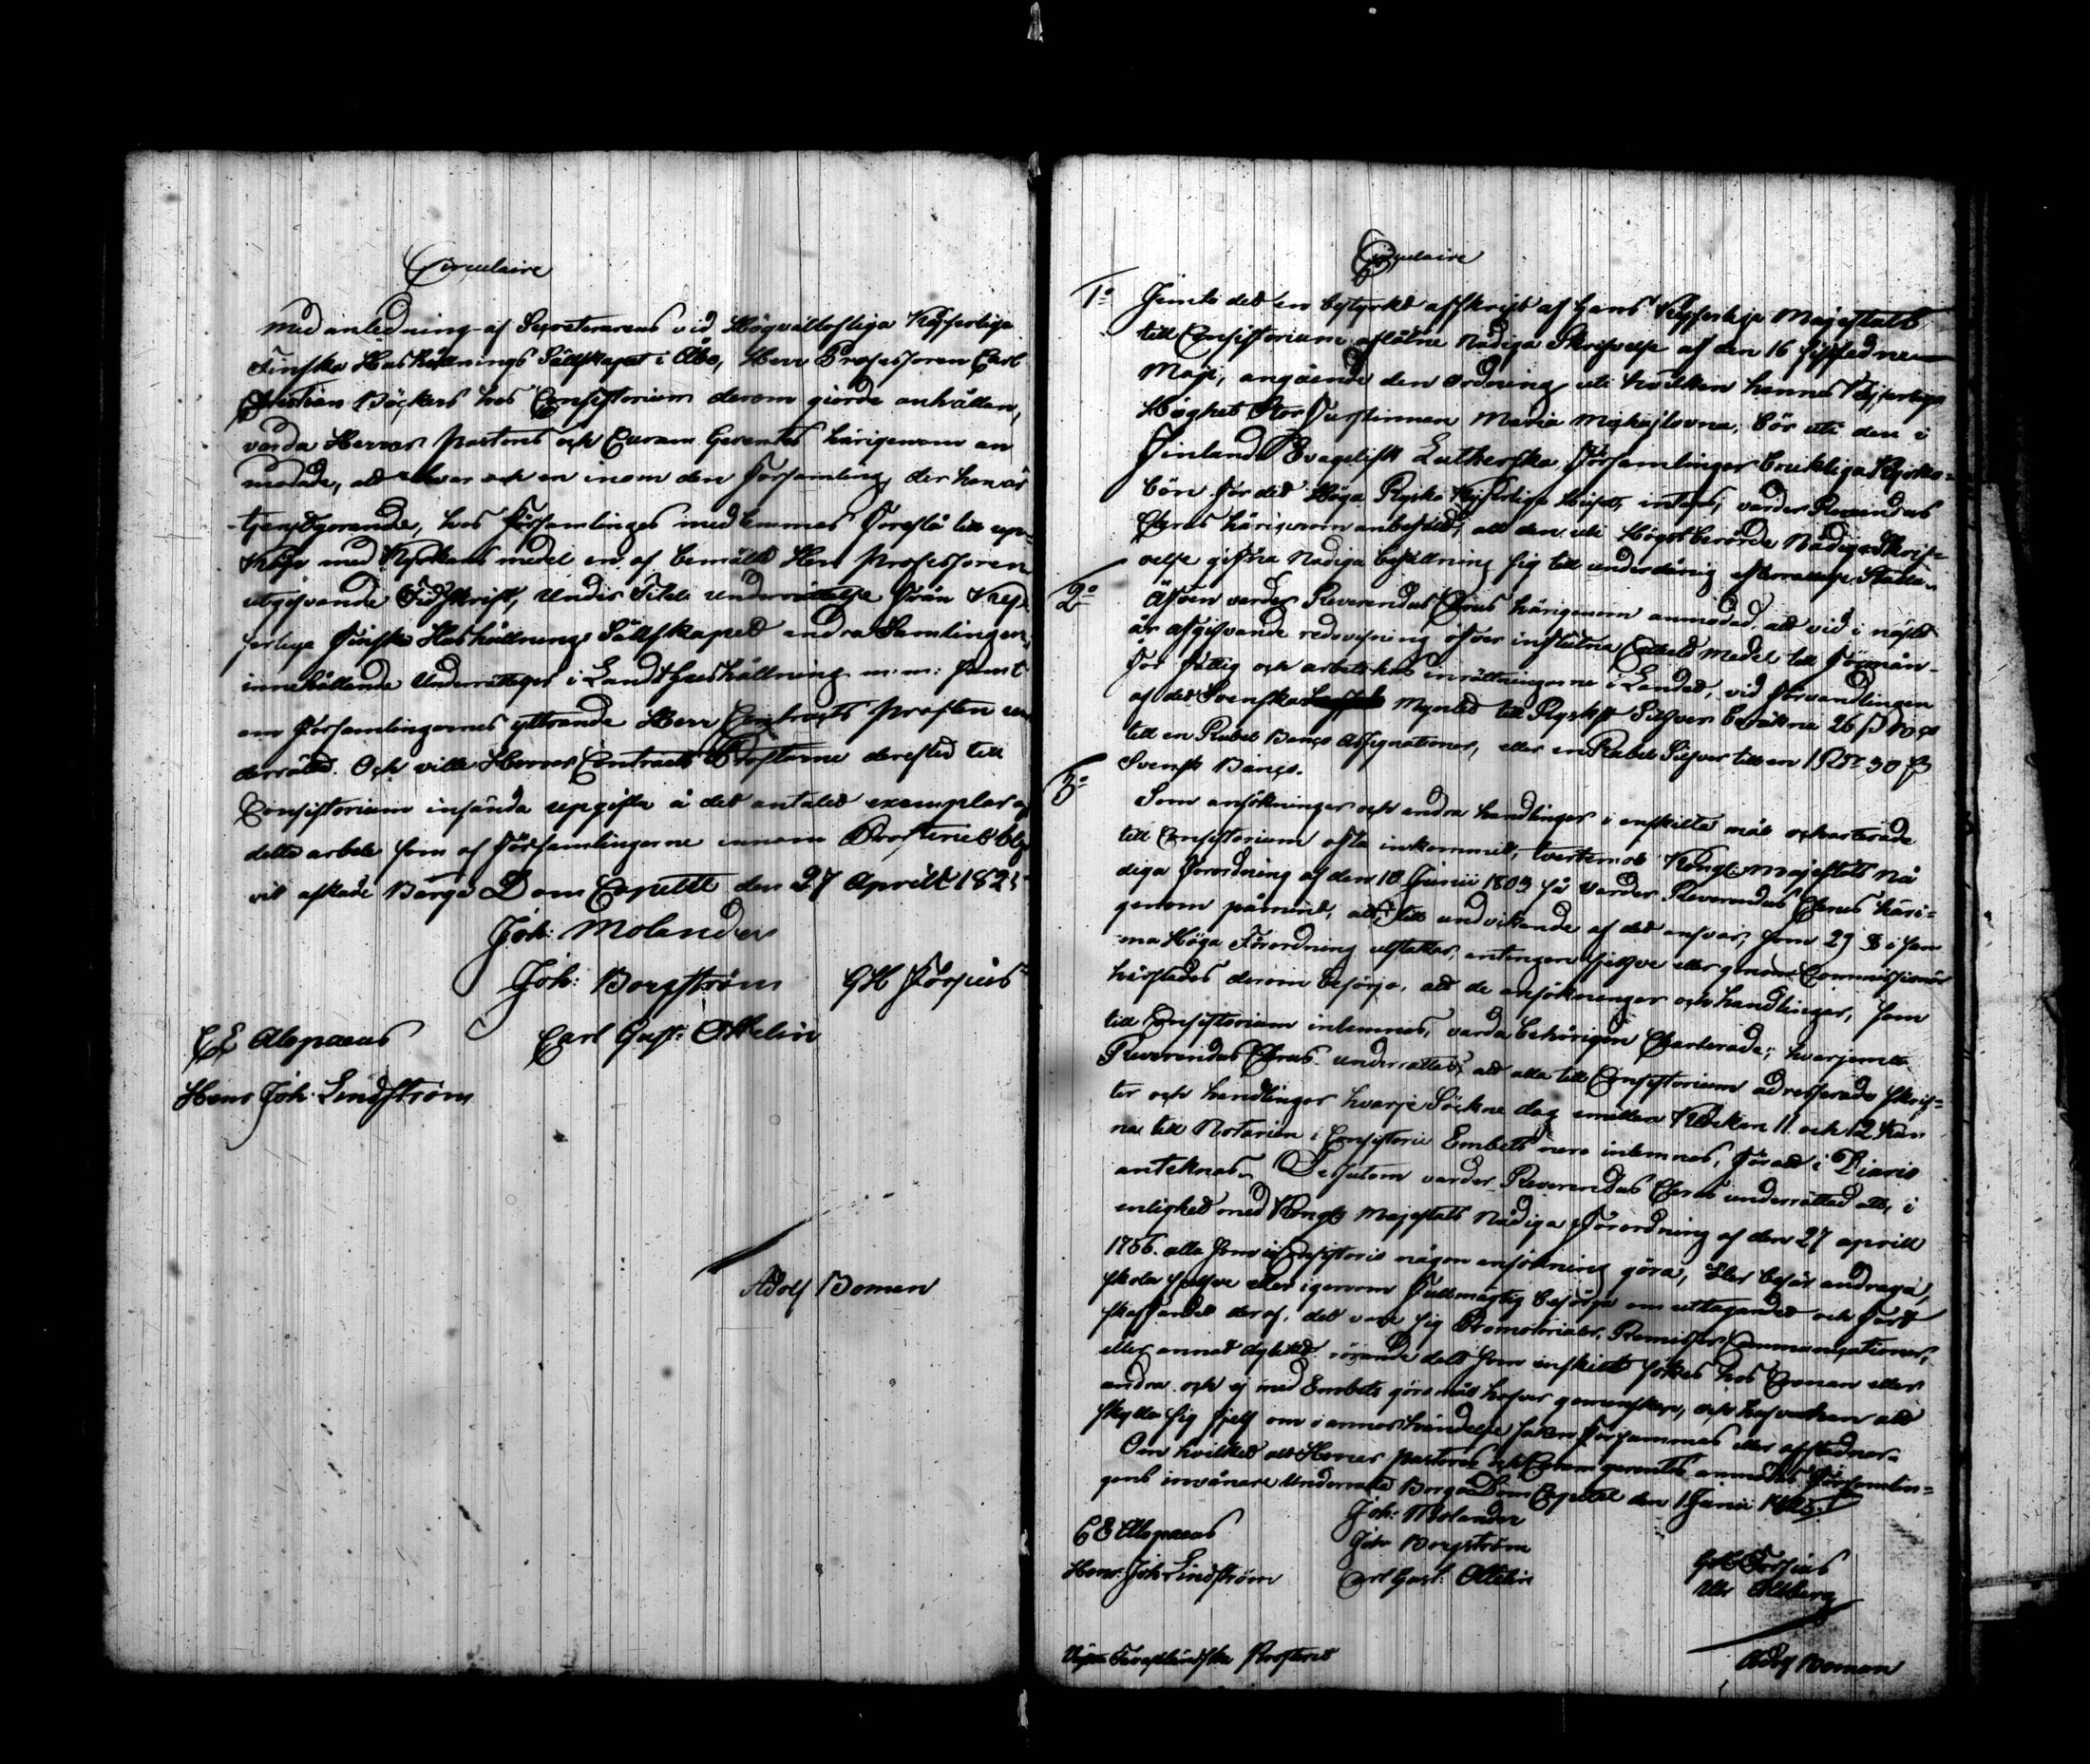 Circulaire
Med anledning af Secreterarens vid Högvällofliga Kejserliga
Finska Hushållnings Sällskapet i Åbo, Herr Professoren Carl
Christian Böckers hos Consistorium derom giorde anhållan,
varda Herrar Pastores och Curam Gerentes härigenom an
modade, att hvar och en inom den Församling, der han är
tjenstgörande, hos Församlingens medlemmar föreslå till upp-
köp med Kyrkans medel en af bemälte Herr Professoren
utgifvande Tidskrift, under Titel underrättelse från Kej-
serliga Finska Hushållnings Sällskapet andra Samlingen,
innehållande Underrättelser i Landthushållning m: m: samt
om Församlingarnes yttrande Herr Contracts Prosten un
derrätta. Och ville Herrar Contracts Prostarne derefter till
Consistorium insända upgifter å det antalet exemplar af
detta arbete som af Församlingarne innom Prosteriet blif
vit åskade Borgå Dom Capitel den 27 Aprill 1825
Joh: Molander
Joh: Borgström GH Forsius
CE Alopaeus Carl Gust: Ottelin
Hans Joh: Lindström
Adolf Boman
Circulaire
1o Jemte det en bestyrkt affskrift af Hans Kejserliga Majestäts
till Consistorium aflåtne Nådiga Skrifvelse af den 16 sistledne
Maji, angående den ordning uti hvilken hennes Kejserliga
Höghet Stor Furstinnan Maria Michajlovna, bör uti den i
Finland Evangelisk Lutherska Församlingar brukliga Kyrko-
bön för det Höga Ryska Kejserliga huset, intagas, varder Reverendus
Clerus härigenom anbefald, att den uti Högstberörde Nådiga Skrif-
velse gifna Nådiga befallning sig till underdånig efterrättelse ställa.
2o Äfven varder Reverendus Clerus härigenom anmodad, att vid i näst
år afgifvande redovisning öfver influtna Collect Medel till förmån
för fattig och arbetshus inrättningarne i Landet, vid förvandlingen
af det Svenska Myntet till Ryskt Silfver beräkna 26 s Bco
till en Rubel Banco Assignationer, eller en Rubel Silfver till en 1 Rdr 30 s
Svensk Banco.
3o Som ansökningar och andra handlingar i enskilte mål ochartade
till Consistorium ofta inkommit, tvertemot Kongl: Majestäts Nå
diga Förordning af den 10 Junii 1803 så varder Reverendus Clerus häri-
genom påmint, att till undvikande af det ansvar, som 29 § i sam
ma Höga Förordning utstakar, antingen sjelfve eller genom Commissionär
härstädes derom besörja, att de ansökningar och handlingar, som
till Consistorium inlemnas, varda behörigen Charterade; hvarjemte
Reverendus Clerus underrättas att alla till Consistorium adresserade skrif-
ter och handlingar hvarje Söckne dag emellan Klockan 11 och 12 kun
na till Notarien i Consistorii Embets rum inlemnas, för att i Diario
anteknas. Dessutom varder Reverendus Clerus underrättad att, i
enlighet med Kongl: Majestäts Nådiga Förordning af den 27 aprill
1756. alla som i Consistorio någon ansökning göra, eller besvär andraga,
skola sjelfve eller igenom Fullmägtig besörja om uttagandet och fort
skaffandet deraf, det vare sig Promotorialer, Remisser, Communicationer,
eller annat dylikt rörande dels som enskilt sökes hos Cronan eller
andra och ej med Embets göromål hafver gemenskap, och hafve han att
skylla sig sjelf om i annor händelse saken försummas eller afstadnar.
Om hvilket allt Herrar Pastores och Curam gerentes anmodas Församlin-
gens invånare underrätta Borgå Dom Capitel den 1 Junii 1825.
Joh: Molander
CE Alopaeus Joh Borgström GH Forsius
Hans: Joh Lindström Carl Gust: Ottelin
Adolf Boman